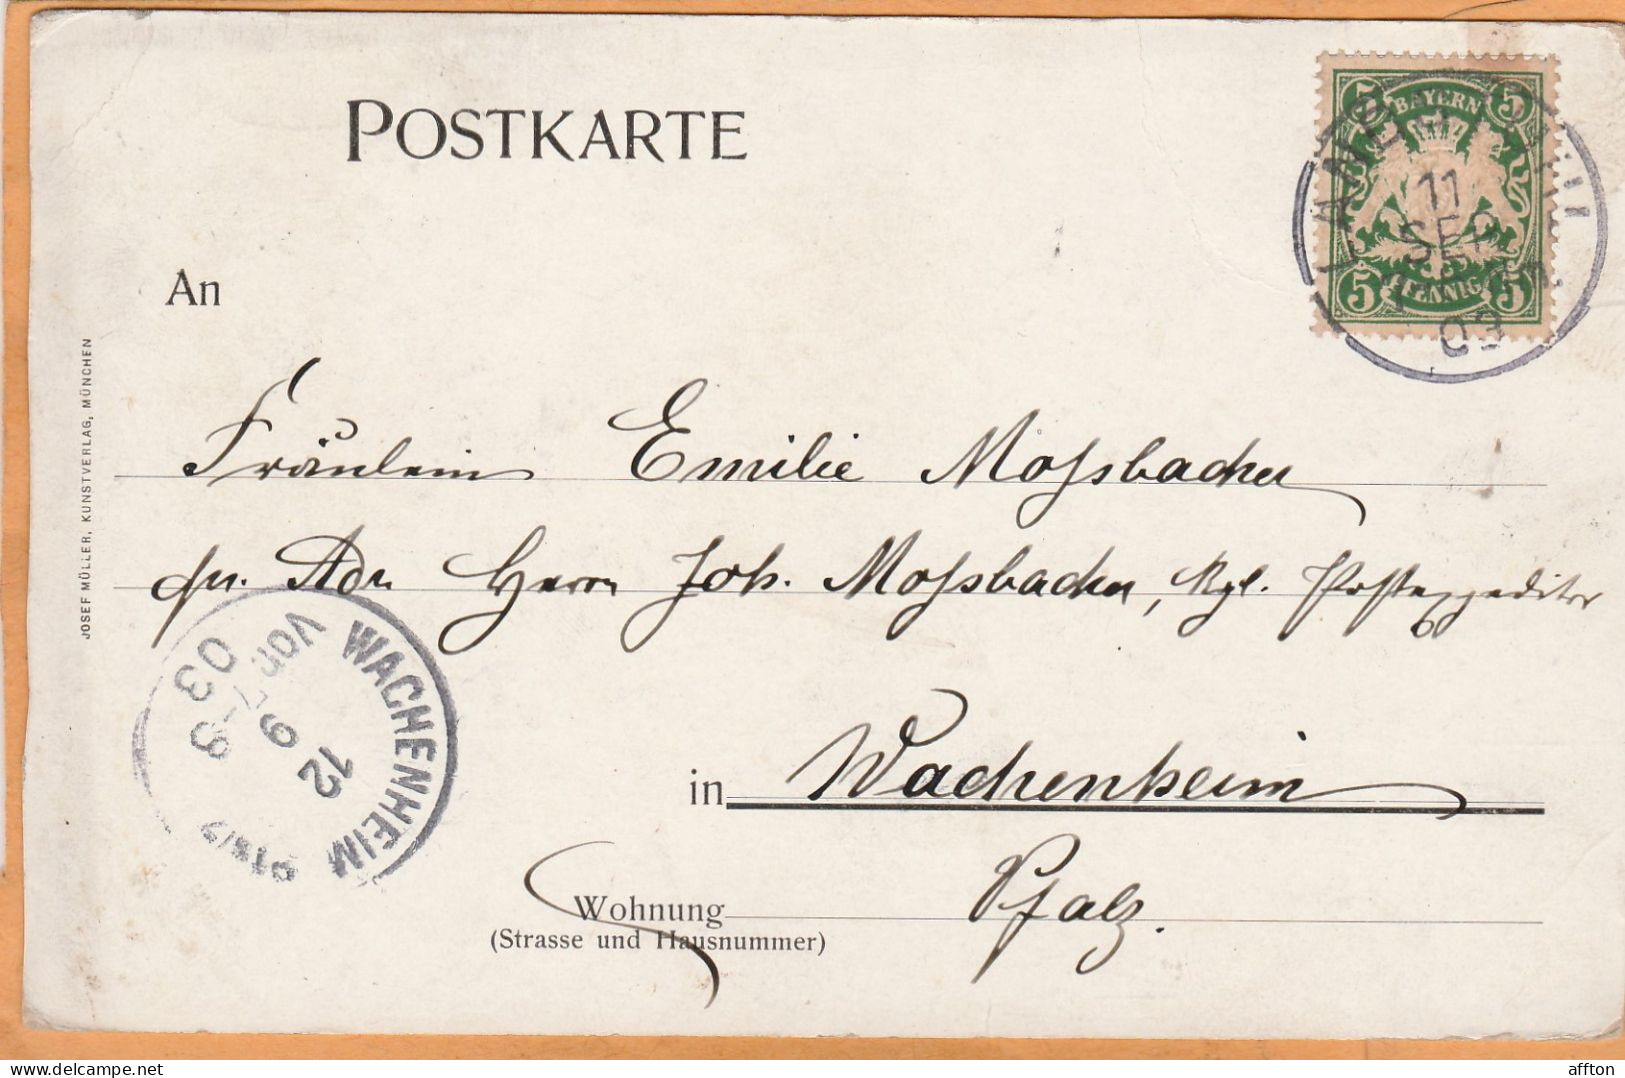 POSTKARTE
BAYERN
5 5
LAMBRECHT
11
SEP
03
5 PFENNIG 5
An
Fräulein Emilie Moſsbacher
pr. Adr Herrn Joh. Moſsbacher, Kgl. Postexpeditor
in Wachenheim
Pfalz.
Wohnung
(Strasse und Hausnummer)
WACHENHEIM
12
9
Vor. 8-9
03
JOSEF MÜLLER, KUNSTVERLAG, MÜNCHEN
delcampe.net
affton